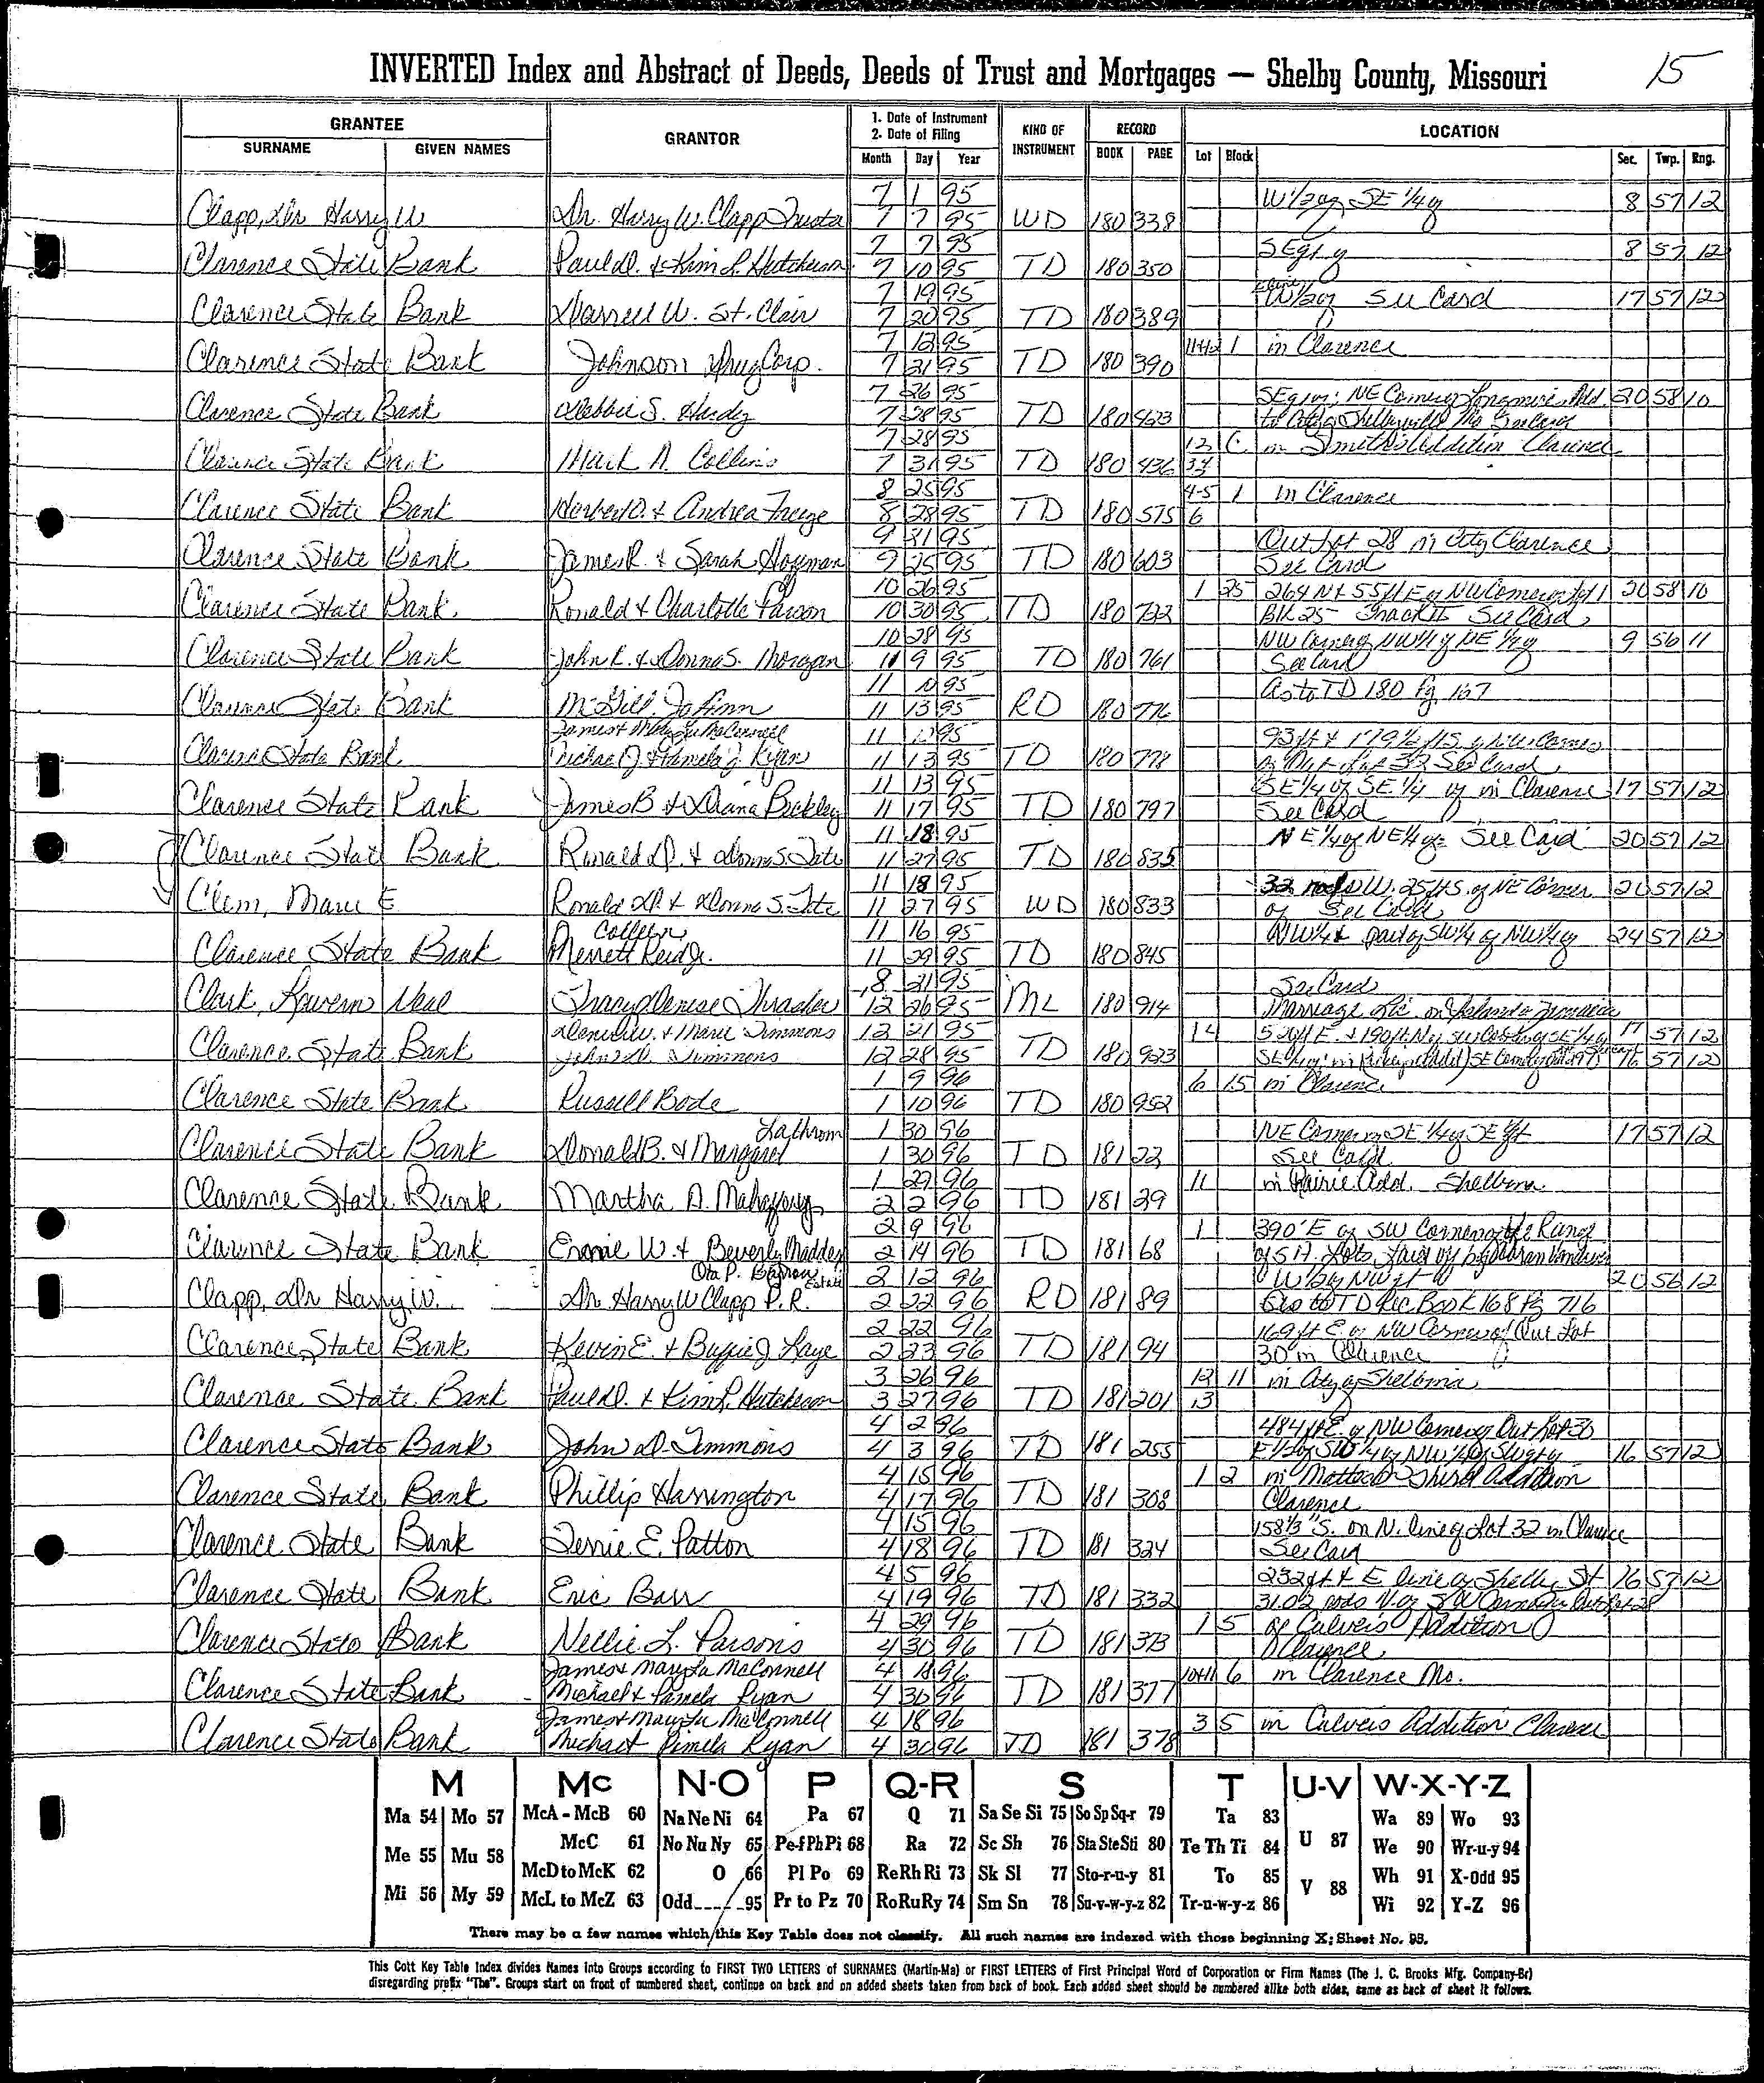 INVERTED Index and Abstract of Deeds, Deeds of Trust and Mortgages — Shelby County, Missouri 15
GRANTEE GRANTOR 1. Date of Instrument 2. Date of Filing KIND OF INSTRUMENT RECORD LOCATION
SURNAME GIVEN NAMES Month Day Year BOOK PAGE Lot Block Sec. Twp. Rng.
7 1 95 W 1/2 of SE 1/4 of 8 57 12
Clapp, Dr Harry W Dr. Harry W. Clapp 7 7 95 WD 180 338
7 7 95 8 57 12
Clarence State Bank Paul D. & Kim L. Hutcheson 7 10 95 TD 180 350
7 19 95 W 1/2 of See Card 17 57 12
Clarence State Bank Darrell W. St. Clair 7 20 95 TD 180 389
7 95 11+12 1 in Clarence
Clarence State Bank Johnson Drug Corp. 7 21 95 TD 180 390
7 26 95 NE Corner Longmire Add. 20 58 10
Clarence State Bank Debbie S. Hardy 7 28 95 TD 180 423 to City of Shelbyville Mo See Card
7 28 95 C in Smith's Addition Clarence
Clarence State Bank Mark A. Collins 7 31 95 TD 180 436
8 25 95 4-5 1 in Clarence
Clarence State Bank Herbert D. & Andrea Freeze 8 28 95 TD 180 575 6
95 Out Lot 28 in City Clarence
Clarence State Bank James R. & Sarah 9 25 95 TD 180 603 See Card
10 26 95 1 25 NW Corner of Lot 1 20 58 10
Clarence State Bank Ronald & Charlotte 10 30 95 TD 180 722 Blk 25 See Card
10 28 95 NW Corner NE 1/4 of 9 56 11
Clarence State Bank John L. & Donna S. Morgan 11 9 95 TD 180 761 See Card
11 95 As to TD 180 Pg 167
Clarence State Bank McGill, JoAnn 11 13 95 RD 180 776
James & Mary Lu McConnell 11 95 93 ft & 179 1/2 ft S. of NW Corner
Clarence State Bank Michael J. & Pamela J. Ryan 11 13 95 TD 180 778 Out Lot 32 See Card
11 13 95 SE 1/4 of SE 1/4 of in Clarence 17 57 12
Clarence State Bank James B & Diana Bickley 11 17 95 TD 180 797 See Card
11 18 95 NE 1/4 of NE 1/4 of See Card 20 57 12
Clarence State Bank Ronald D. & Donna S. Tate 11 27 95 TD 180 835
11 18 95 32 rods W. 25 ft S. of NE Corner 20 57 12
Clem, Marie E Ronald D. & Donna S. Tate 11 27 95 WD 180 833 of See Card
Colleen 11 16 95 NW 1/4 & part of SW 1/4 of NW 1/4 of 24 57 12
Clarence State Bank Merrett Reid Jr. 11 29 95 TD 180 845
8 21 95 See Card
Clark, Lavern Neal Tracy Denise Thrasher 12 26 95 ML 180 914 Marriage Lic. on Island of Jamaica
& Marie Timmons 12 21 95 14 520 ft E. & 190 ft N of 17 57 12
Clarence State Bank John D. Timmons 12 28 95 TD 180 923 16 57 12
1 9 96 6 15 in Clarence
Clarence State Bank Russell Bode 1 10 96 TD 180 952
Lathrom 1 30 96 NE Corner of SE 1/4 of 17 57 12
Clarence State Bank Donald B. & Margaret 1 30 96 TD 181 22 See Card
1 29 96 11 in Prairie Add. Shelbina
Clarence State Bank Martha A. 2 2 96 TD 181 29
2 9 96 1 390' E of SW Corner of the Range
Clarence State Bank Ernie W. & Beverly Madden 2 14 96 TD 181 68
Ora P. Estate 2 12 96 20 56 12
Clapp, Dr Harry W. Dr Harry W Clapp P.R. 2 22 96 RD 181 89 as to TD Rec Book 168 Pg 716
2 22 96 169 ft E of NW Corner of Out Lot
Clarence State Bank Kevin E. & Kaye 2 23 96 TD 181 94 30 in Clarence
3 26 96 12 11 in City of Shelbina
Clarence State Bank Paul D. & Kim L. Hutcheson 3 27 96 TD 181 201 13
4 2 96 484 ft E of NW Corner of Out Lot 30
Clarence State Bank John D. Timmons 4 3 96 TD 181 255 E 1/2 of SW 1/4 of NW 1/4 of 16 57 12
4 15 96 1 2 in Third Addition
Clarence State Bank Phillip Harrington 4 17 96 TD 181 308 Clarence
4 15 96 158 1/3 "S. on N. line of Lot 32 in Clarence
Clarence State Bank Terrie E. Patton 4 18 96 TD 181 324 See Card
4 5 96 232 ft & E line of Shelby St 16 57 12
Clarence State Bank Eric Barr 4 19 96 TD 181 332
4 29 96 1 5 of Culvers Addition
Clarence State Bank Nellie L. Parsons 4 30 96 TD 181 373 Clarence
James & Mary Lu McConnell 4 18 96 10+11 6 in Clarence Mo.
Clarence State Bank Michael & Pamela Ryan 4 30 96 TD 181 377
James & Mary Lu McConnell 4 18 96 3 5 in Culvers Addition Clarence
Clarence State Bank Michael Pamela Ryan 4 30 96 TD 181 378
M Mc N-O P Q-R S T U-V W-X-Y-Z
Ma 54 Mo 57 McA - McB 60 Na Ne Ni 64 Pa 67 Q 71 Sa Se Si 75 So Sp Sq-r 79 Ta 83 Wa 89 Wo 93
Me 55 Mu 58 McC 61 No Nu Ny 65 Pe-f Ph Pi 68 Ra 72 Sc Sh 76 Sta Ste Sti 80 Te Th Ti 84 U 87 We 90 Wr-u-y 94
McD to McK 62 O 66 Pl Po 69 Re Rh Ri 73 Sk Sl 77 Sto-r-u-y 81 To 85 V 88 Wh 91 X-Odd 95
Mi 56 My 59 McL to McZ 63 Odd 95 Pr to Pz 70 Ro Ru Ry 74 Sm Sn 78 Su-v-w-y-z 82 Tr-u-w-y-z 86 Wi 92 Y-Z 96
There may be a few names which this Key Table does not classify. All such names are indexed with those beginning X; Sheet No. 95.
This Cott Key Table Index divides Names into Groups according to FIRST TWO LETTERS of SURNAMES (Martin-Ma) or FIRST LETTERS of First Principal Word of Corporation or Firm Names (The J. C. Brooks Mfg. Company-Br)
disregarding prefix "The". Groups start on front of numbered sheet, continue on back and on added sheets taken from back of book. Each added sheet should be numbered alike both sides, same as back of sheet it follows.